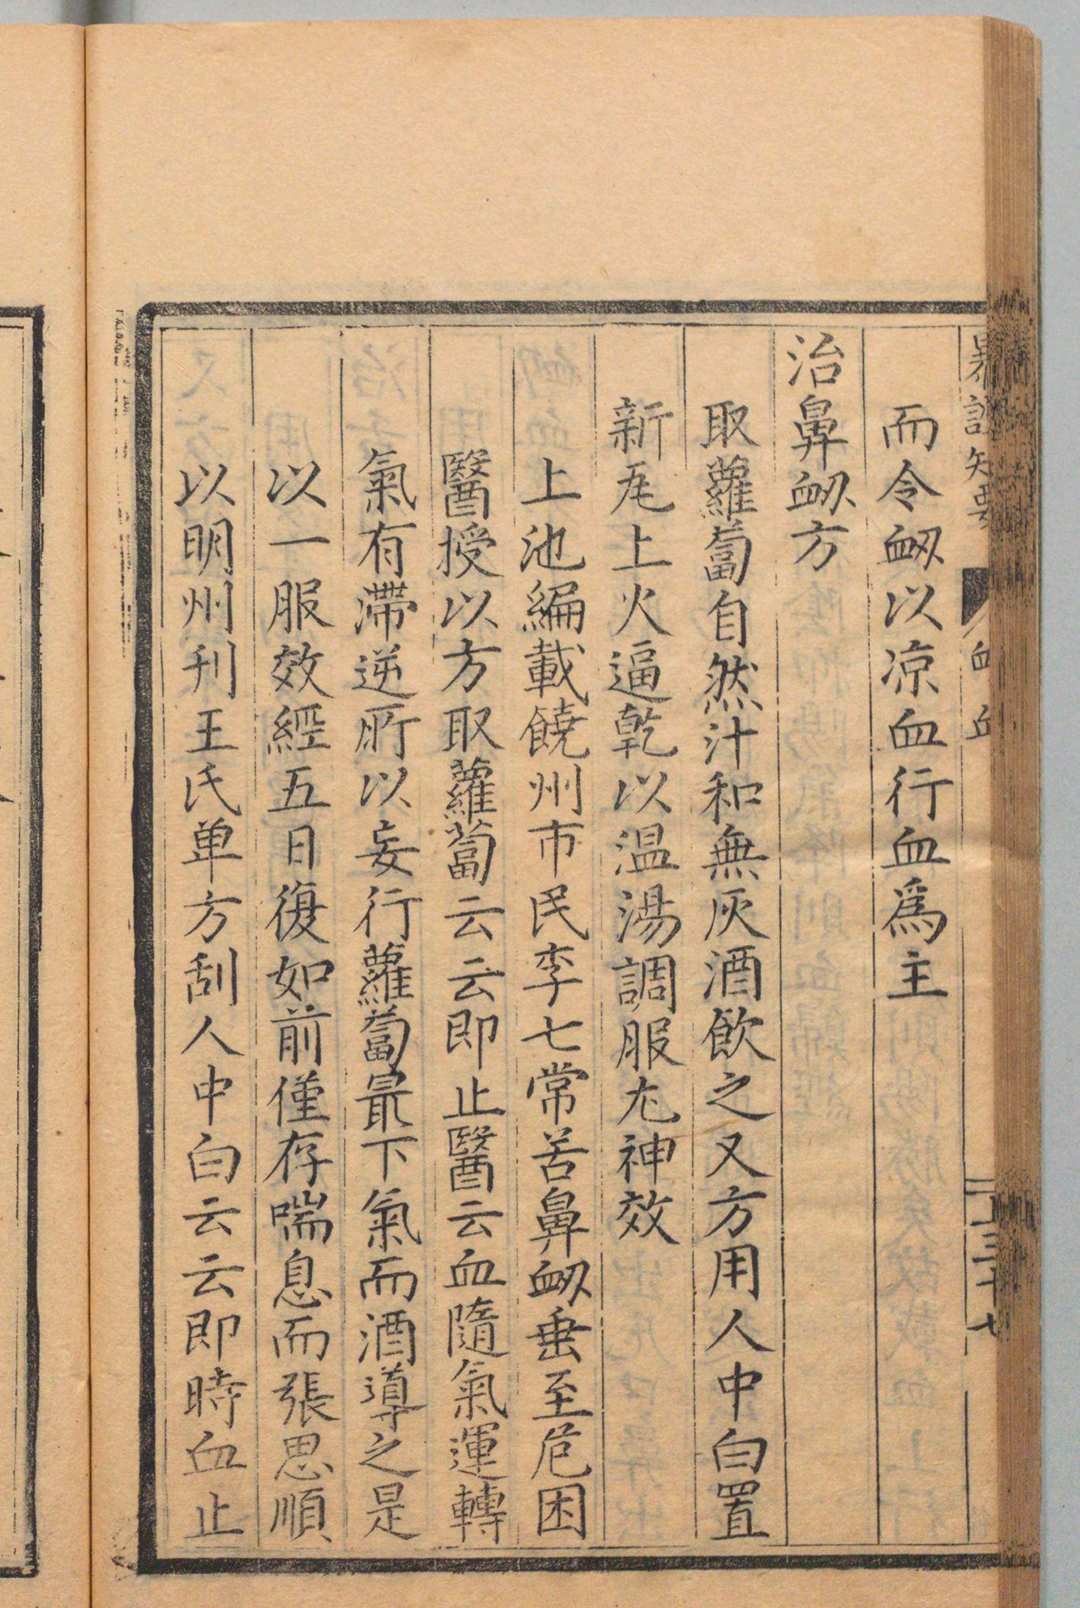 而令衂以凉血行血爲主
治鼻衂方
取蘿蔔自然汁和無灰酒飲之又方用人中白置
新瓦上火逼乾以温湯調服尤神效
上池編載饒州市民李七常苦鼻衂垂至危困
醫授以方取蘿蔔云云即止醫云血隨氣運轉
氣有滯逆所以妄行蘿蔔最下氣而酒導之是
以一服效經五日復如前僅存喘息而張思順
以明州刊王氏单方刮人中白云云即時血止